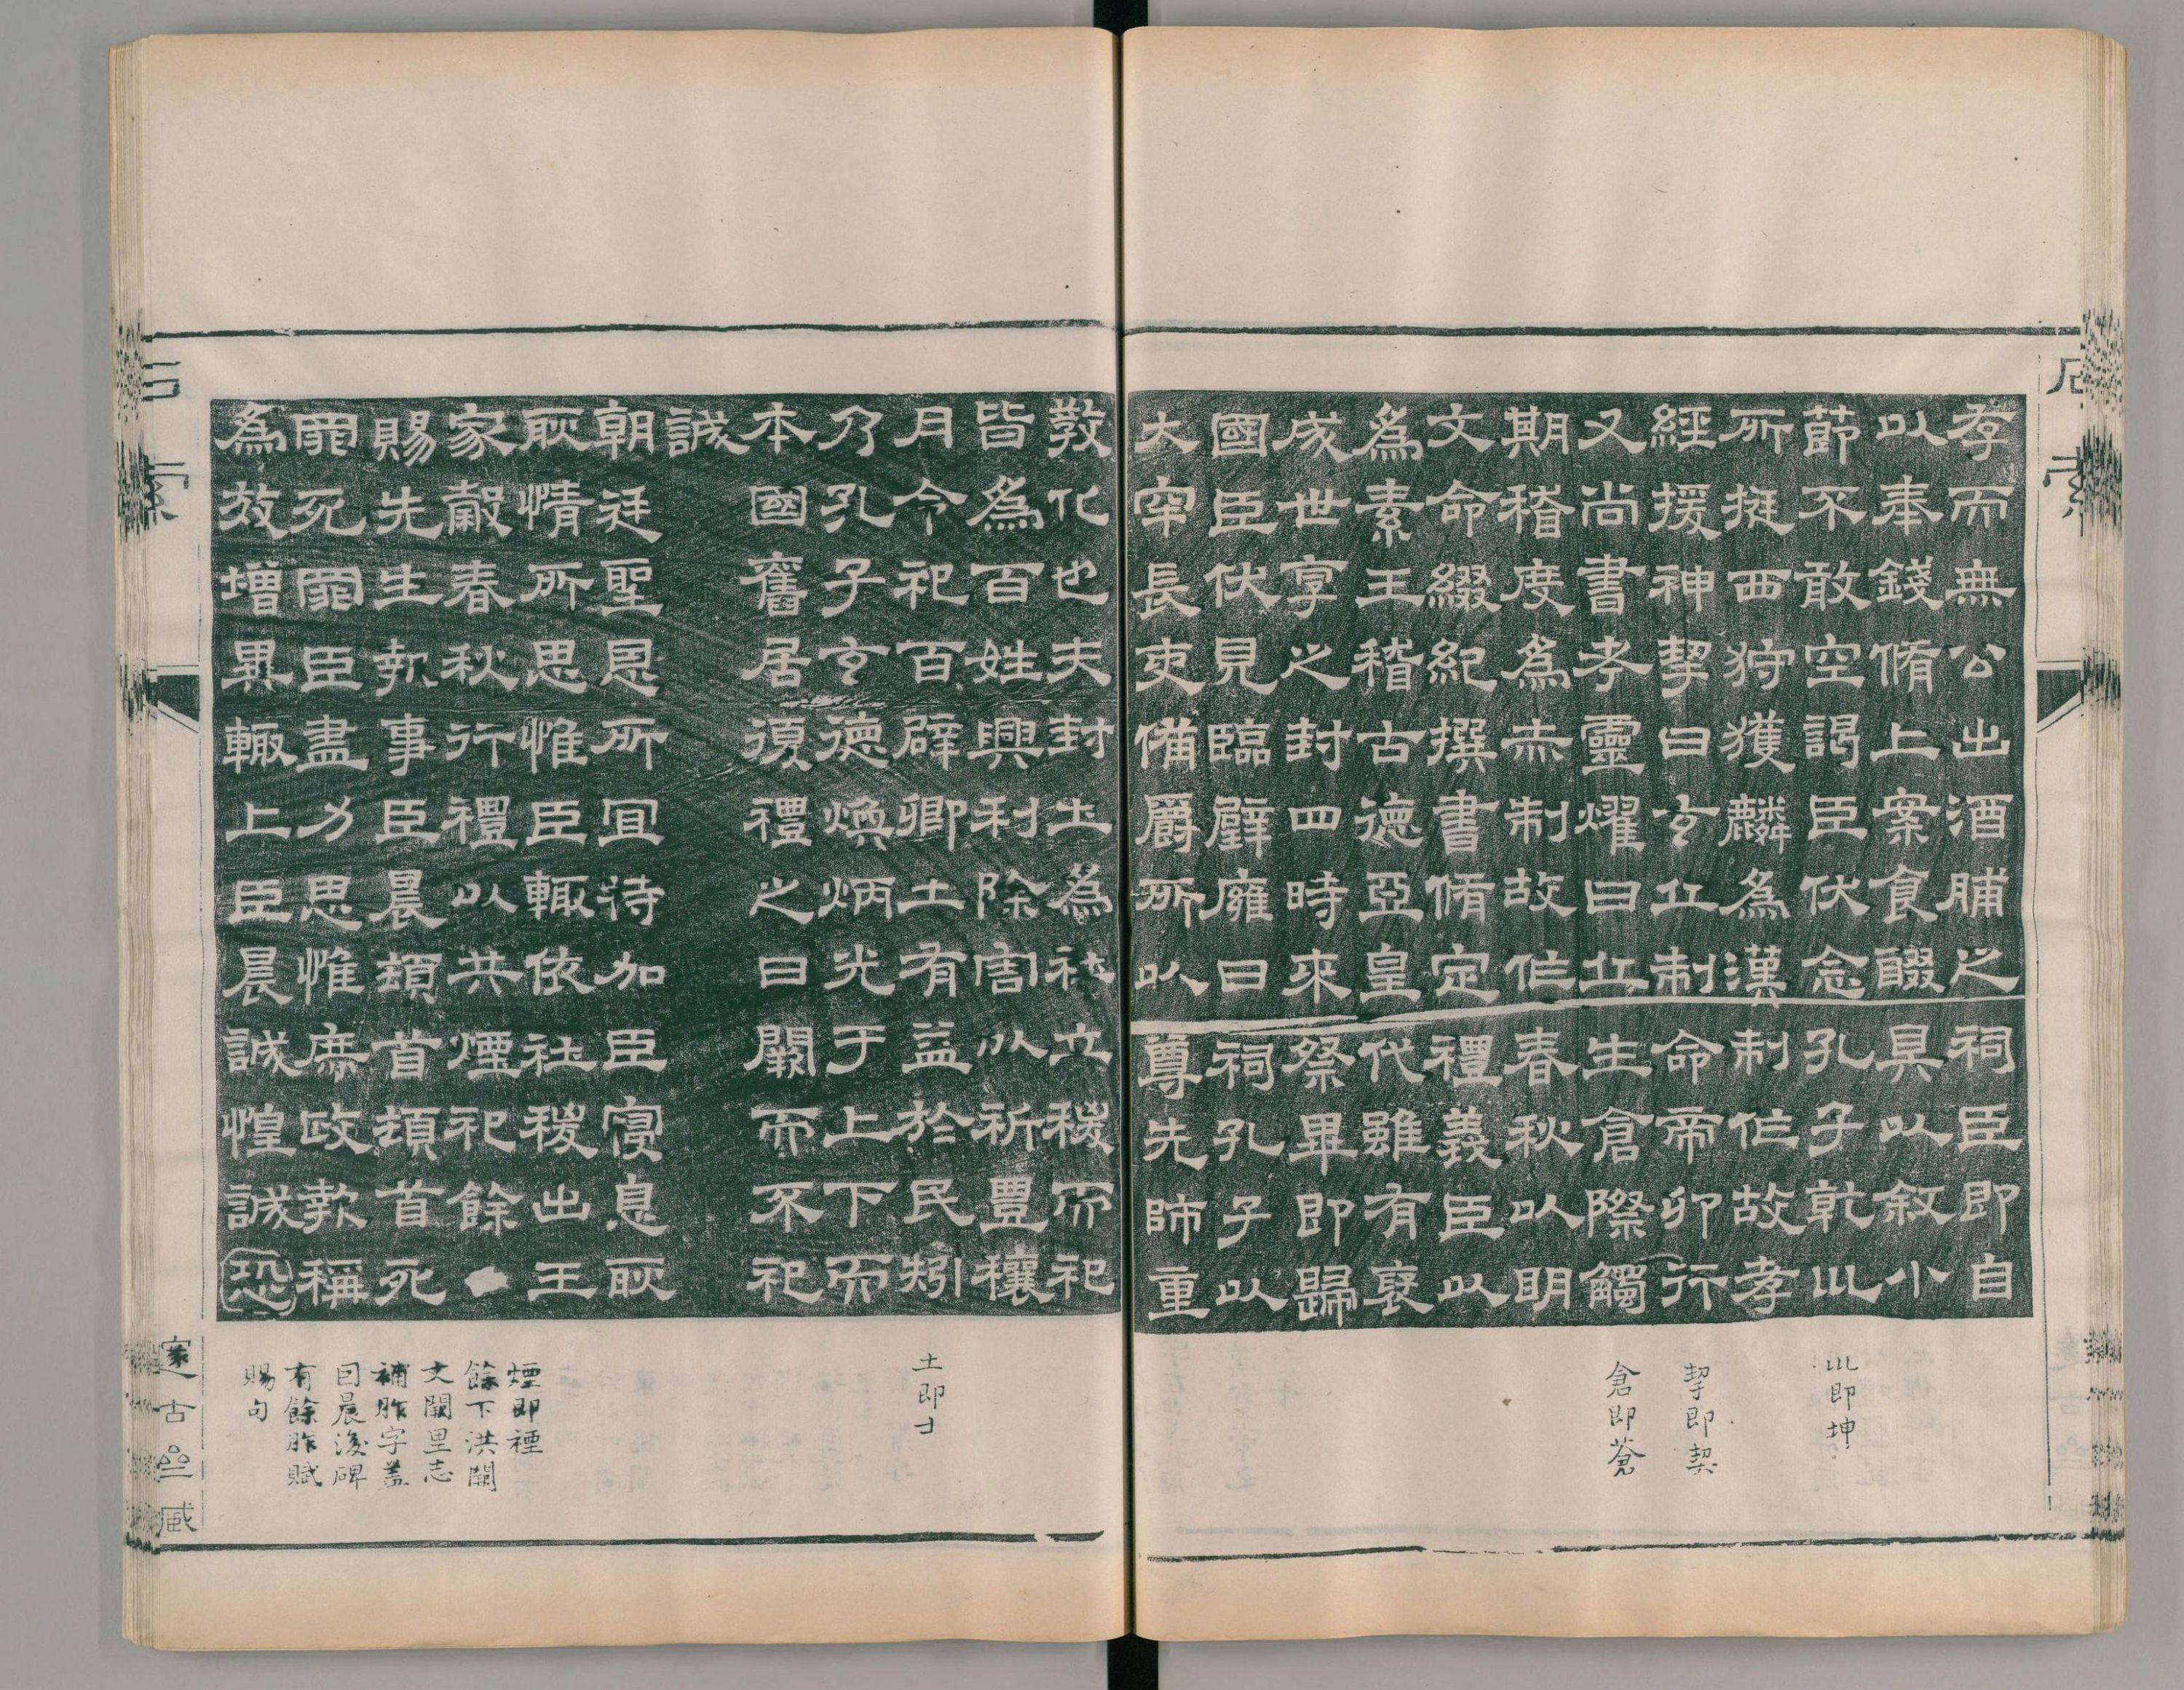 石索
存而無公出酒脯之祠臣即自
以奉錢脩上案食醊具以敘小
節不敢空謁臣伏念孔子乾巛
所挺西狩獲麟為漢制作故孝
經援神挈曰玄丘制命帝卯行
又尚書考靈燿曰丘生倉際觸
期稽度為赤制故作春秋以明
文命綴紀撰書脩定禮義臣以
為素王稽古德亞皇代雖有褒
成世享之封四時來祭畢即歸
國臣伏見臨辟廱日祠孔子以
大牢長吏備爵所以尊先師重
巛即坤
挈即契
倉即蒼
敎化也夫封土為社立稷而祀
皆為百姓興利除害以祈豐穰
月令祀百辟卿土有益於民矧
乃孔子玄德煥炳光于上下而
本國舊居復禮之日闕而不祀
誠
朝廷聖恩所宜特加臣寑息耿
耿情所思惟臣輒依社稷出王
家穀春秋行禮以共煙祀餘
賜先生執事臣晨頓首頓首死
罪死罪臣盡力思惟庶政報稱
為效增異輒上臣晨誠惶誠恐
土即士
煙即禋
餘下洪闕
文闕里志
補胙字蓋
因晨後碑
有餘胙賦
賜句
石索
邃古齋藏